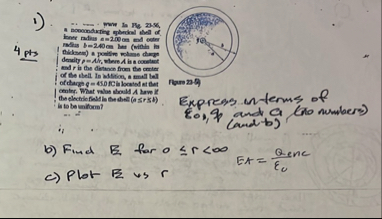 1)
4 pts
www In Fig. 23-56,
a nonconducting spherical shell of
inner radius a = 2.00 cm and outer
radius b = 2.40 cm has (within its
thickness) a positive volume charge
density ρ = A/r, where A is a constant
and r is the distance from the center
of the shell. In addition, a small ball
of charge q = 45.0 fC is located at that
center. What value should A have if
the electric field in the shell (a ≤ r ≤ b)
is to be uniform?
Figure 23-56
Express in terms of
ε₀, q and a (no numbers)
(and b)
b) Find E for 0 ≤ r < ∞
EA = Qenc/ε₀
c) Plot E vs r